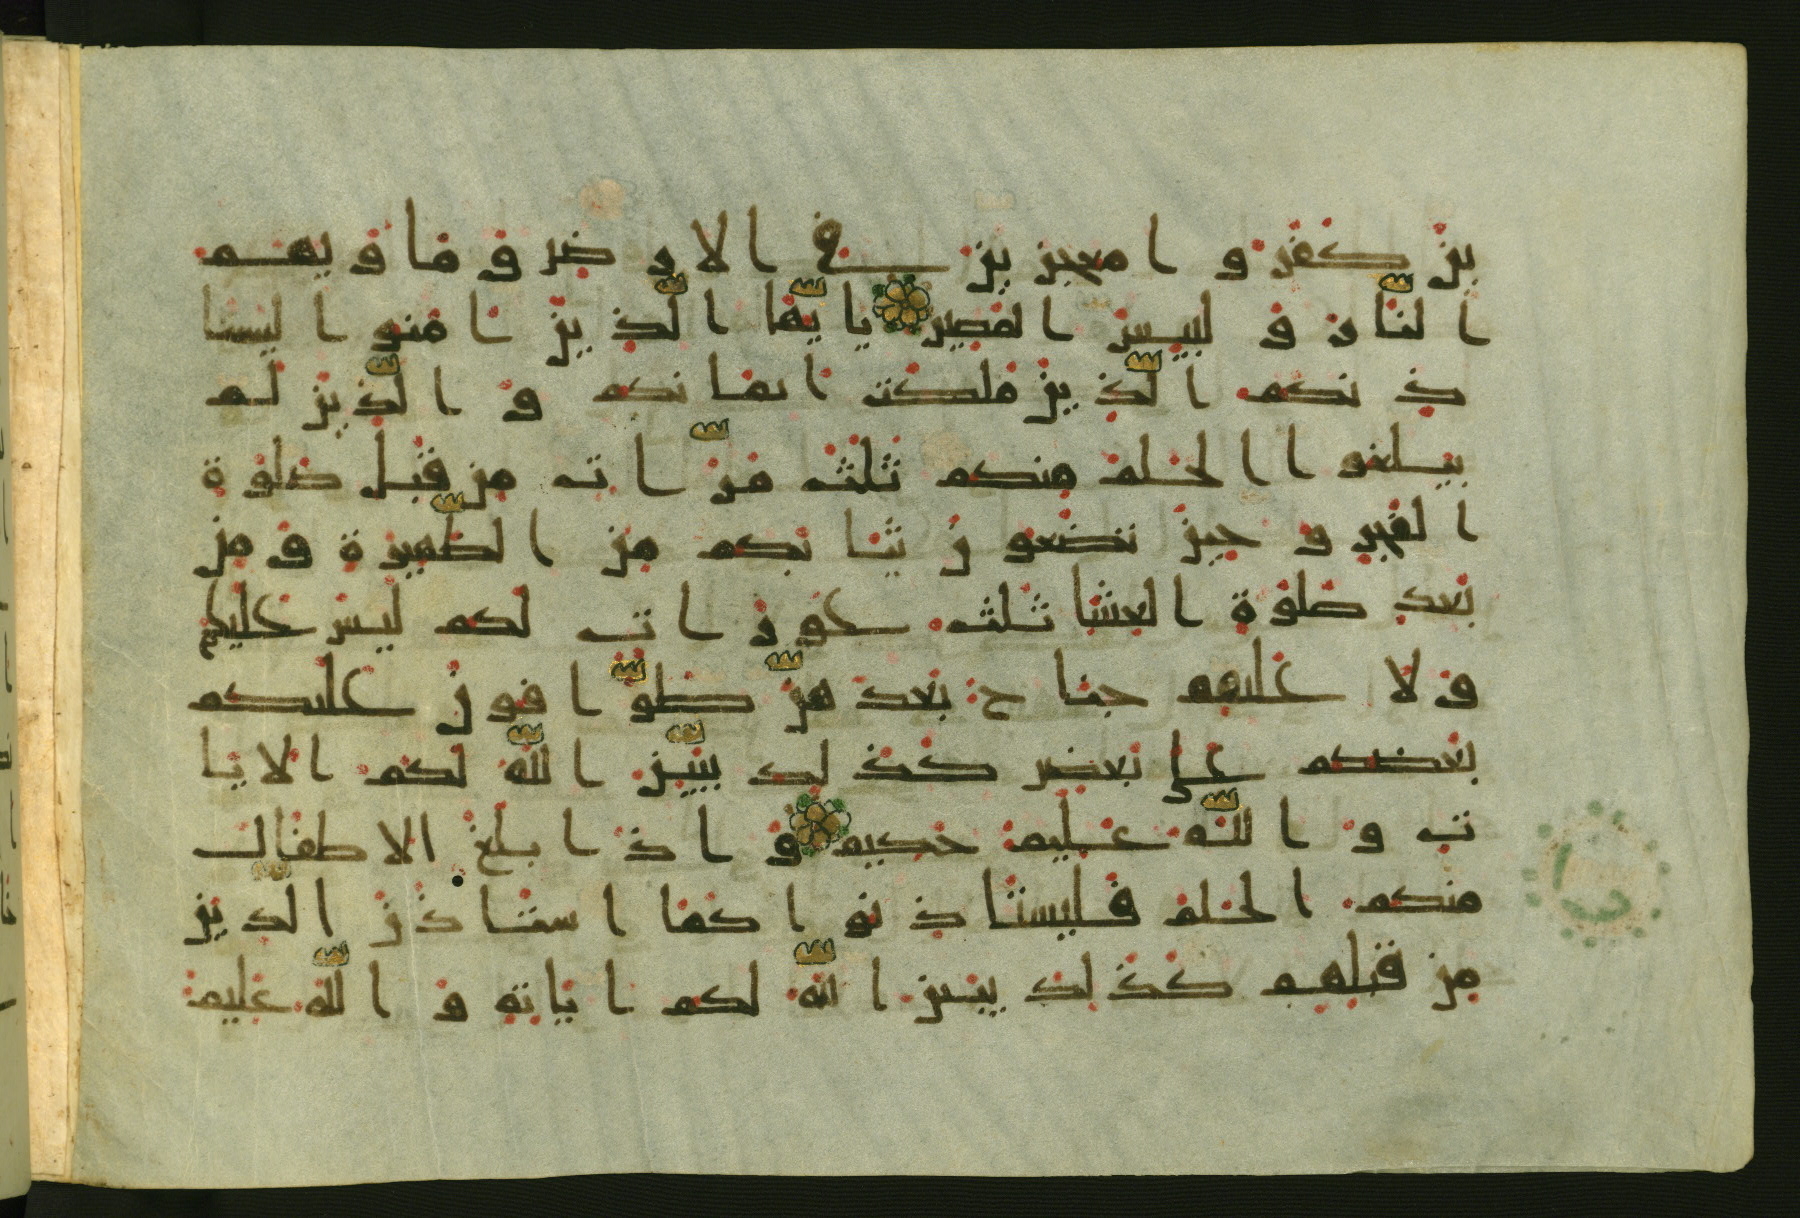 ين كفروا معجزين في الارض و ماويهم
النار و لبئس المصير يايها الذين امنوا ليستا
ذنكم الذين ملكت ايمانكم و الذين لم
يبلغوا الحلم منكم ثلث مرات من قبل صلوة
الفجر و حين تضعون ثيابكم من الظهيرة و من
بعد صلوة العشا ثلث عورات لكم ليس عليكم
و لا عليهم جناح بعدهن طوافون عليكم
بعضكم على بعض كذلك يبين الله لكم الايا
ت و الله عليم حكيم و اذا بلغ الاطفال
منكم الحلم فليستاذنوا كما استاذن الذين
من قبلهم كذلك يبين الله لكم اياته و الله عليم